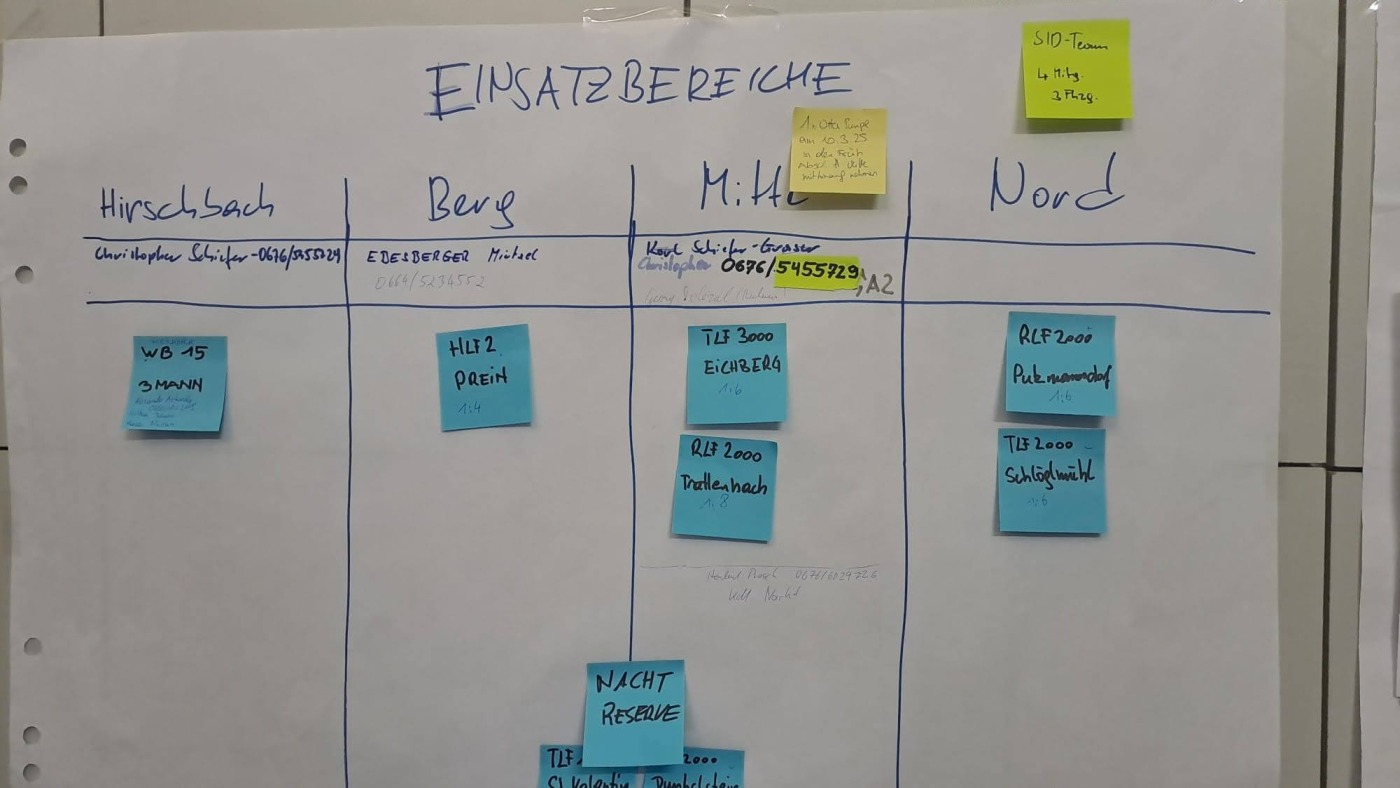 EINSATZBEREICHE
SID-Team
4 Mitg.
3 Fhzg.
am 10.3.25
in der Früh
Hirschbach
Berg
Mitte
Nord
Christopher Schiefer-0676/5455729
EDESBERGER Michael
0664/5234552
Karl Schiefer-Graser
Christopher 0676/5455729; A2
WB 15
3 MANN
HLF2
PREIN
1:4
TLF 3000
EICHBERG
1:6
RLF 2000
Trattenbach
1:8
RLF 2000
Putzmannsdorf
1:6
TLF 2000
Schlöglmühl
1:6
0676/6029726
NACHT
RESERVE
TLF
St. Valentin
2000
Dunkelstein